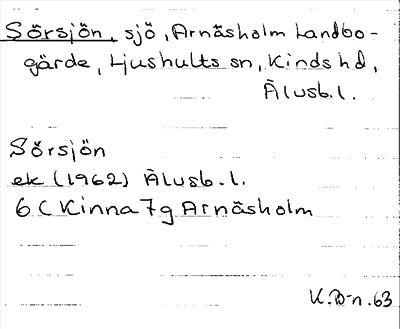 Sörsjön, sjö, Arnäsholm Landbo-
gärde, Ljushults sn, Kinds hd,
Älvsb. l.
Sörsjön
ek (1962) Älvsb. l.
6 C Kinna 7 g Arnäsholm
K. B-n. 63